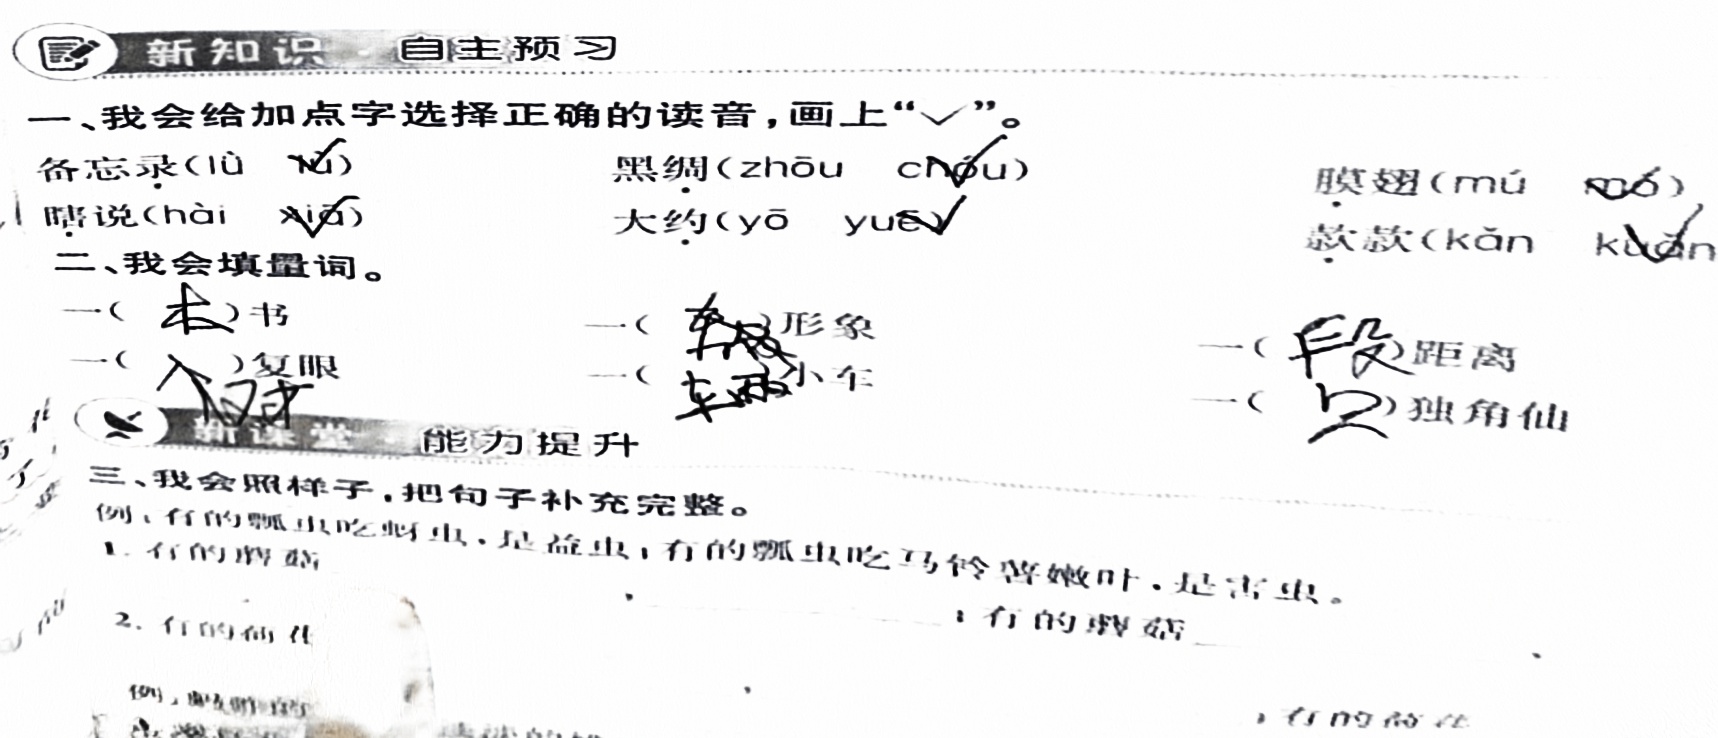 新知识·自主预习
一、我会给加点字选择正确的读音，画上“✓”。
备忘录(lù lǜ) 黑绸(zhōu chóu) 膜翅(mú mó)
瞎说(hài xiā) 大约(yō yuē) 款款(kǎn kuǎn
二、我会填量词。
一(本)书 一( )形象 一(段)距离
一(对)复眼 一(辆)小车 一(只)独角仙
新课堂·能力提升
三、我会照样子，把句子补充完整。
例：有的瓢虫吃蚜虫，是益虫；有的瓢虫吃马铃薯嫩叶，是害虫。
1. 有的蘑菇 ， ；有的蘑菇 。
2. 有的荷花 ， ；有的荷花
例：